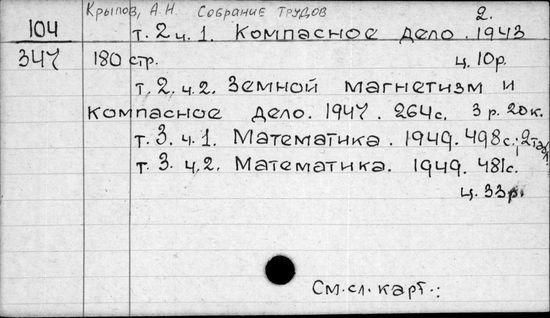 Крылов, А.Н. Собрание трудов 2.
104 т. 2 ч. 1. Компасное дело. 1943
347 180 стр. ц. 10р.
т. 2. ч. 2. Земной магнетизм и
компасное дело. 1947. 264с. 3 р. 20к.
т. 3. ч. 1. Математика. 1949. 498с.; 2 табл.
т. 3. ч. 2. Математика. 1949. 481с.
ц. 33р.
См. сл. карт.: